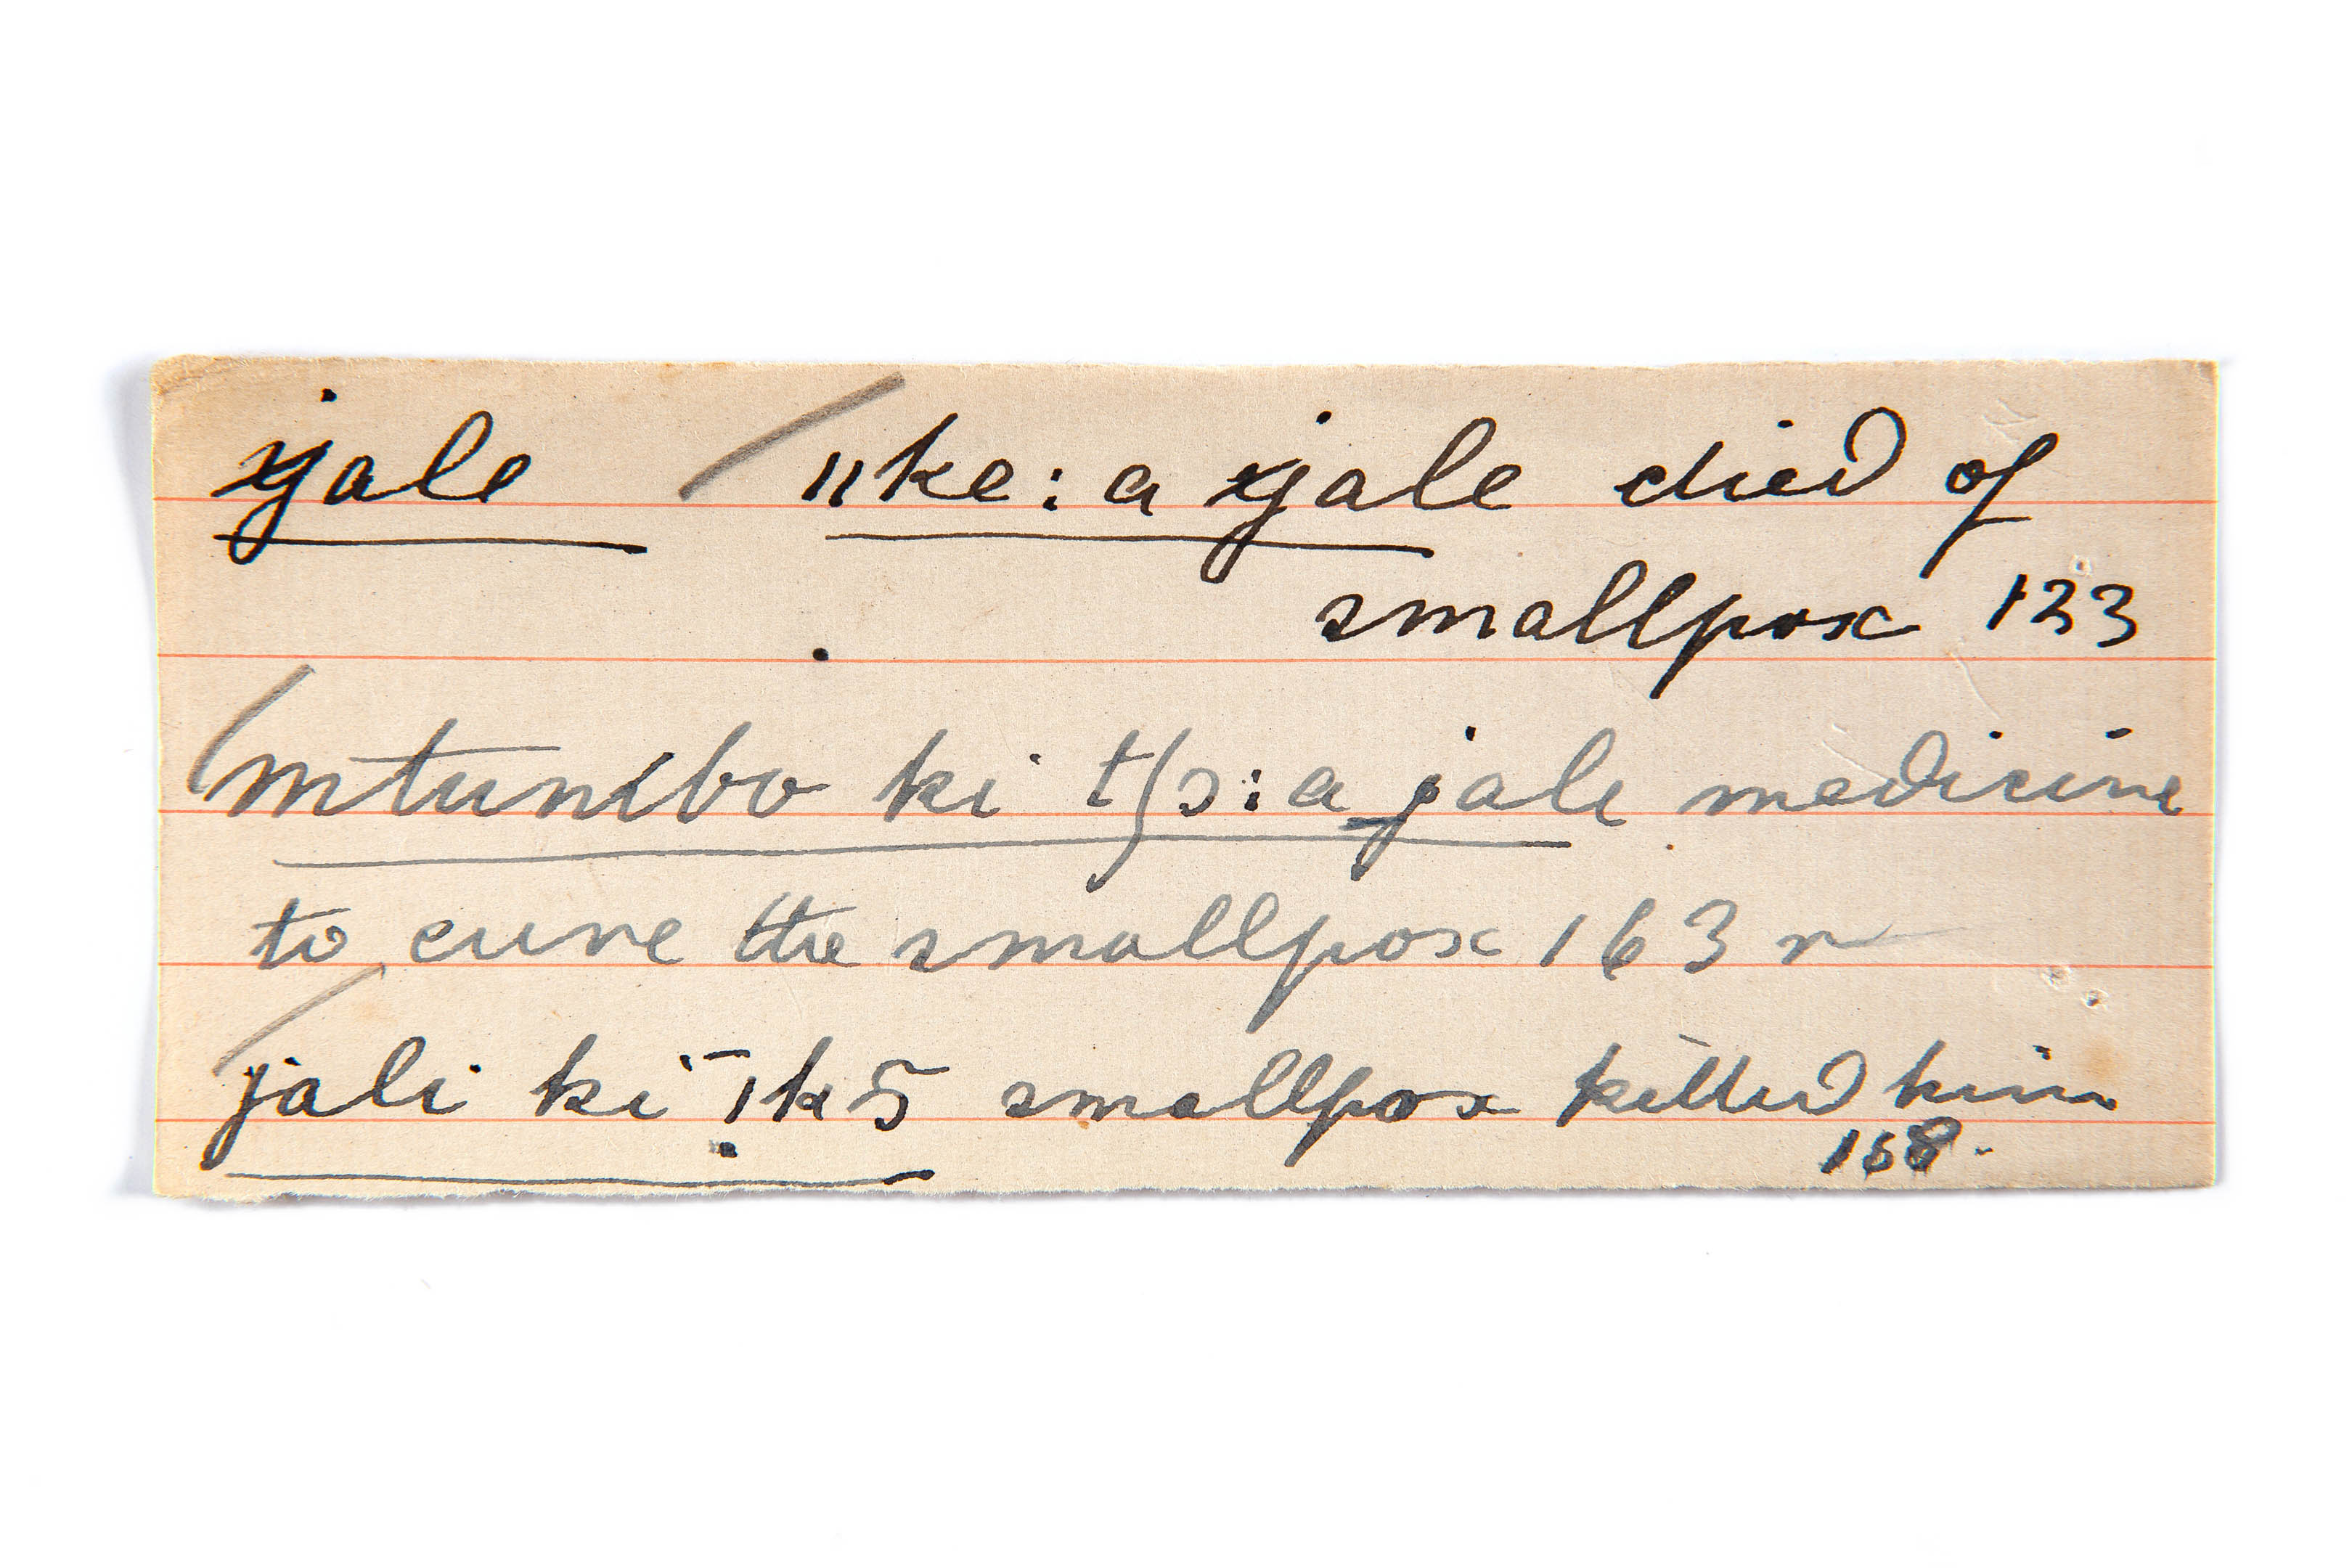 jale ǁke:a jale died of
smallpox 123
mtumbo ki tʃɔ:a jale medicine
to cure the smallpox 163 r
jali ki smallpox killed him
168.